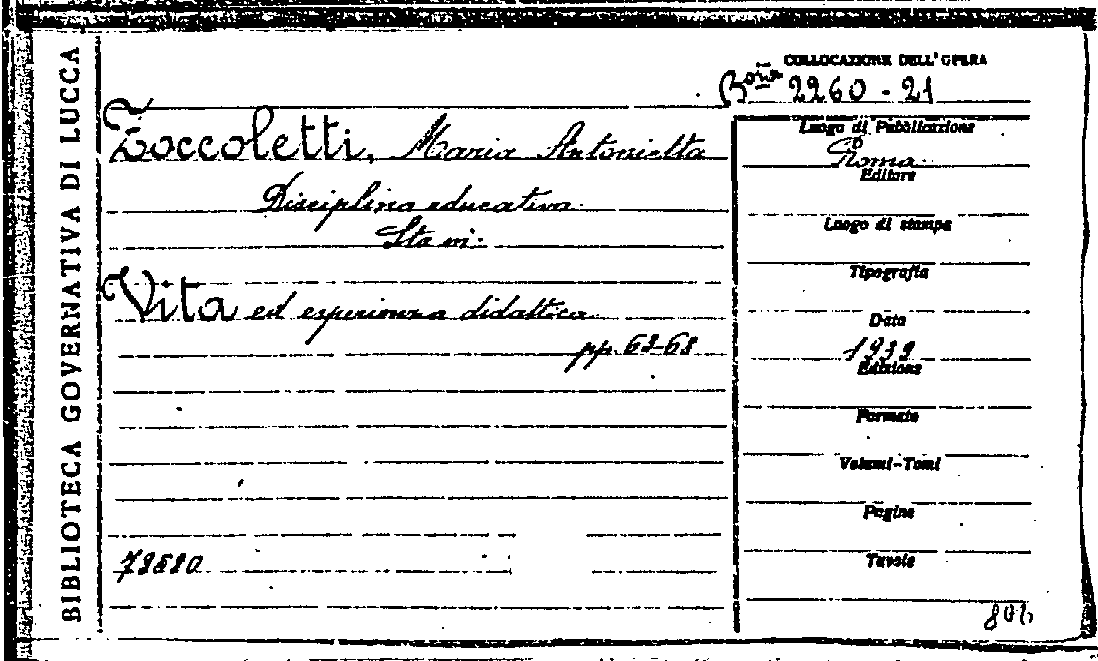 BIBLIOTECA GOVERNATIVA DI LUCCA
COLLOCAZIONE DELL'OPERA
Bª 2260 - 21
Zoccoletti, Maria Antonietta
Disciplina educativa.
Sta in:
Vita ed esperienza didattica
pp. 63-68
Luogo di Pubblicazione
Roma
Editore
Luogo di stampa
Tipografia
Data
1939
Edizione
Formato
Volumi-Tomi
Pagine
Tavole